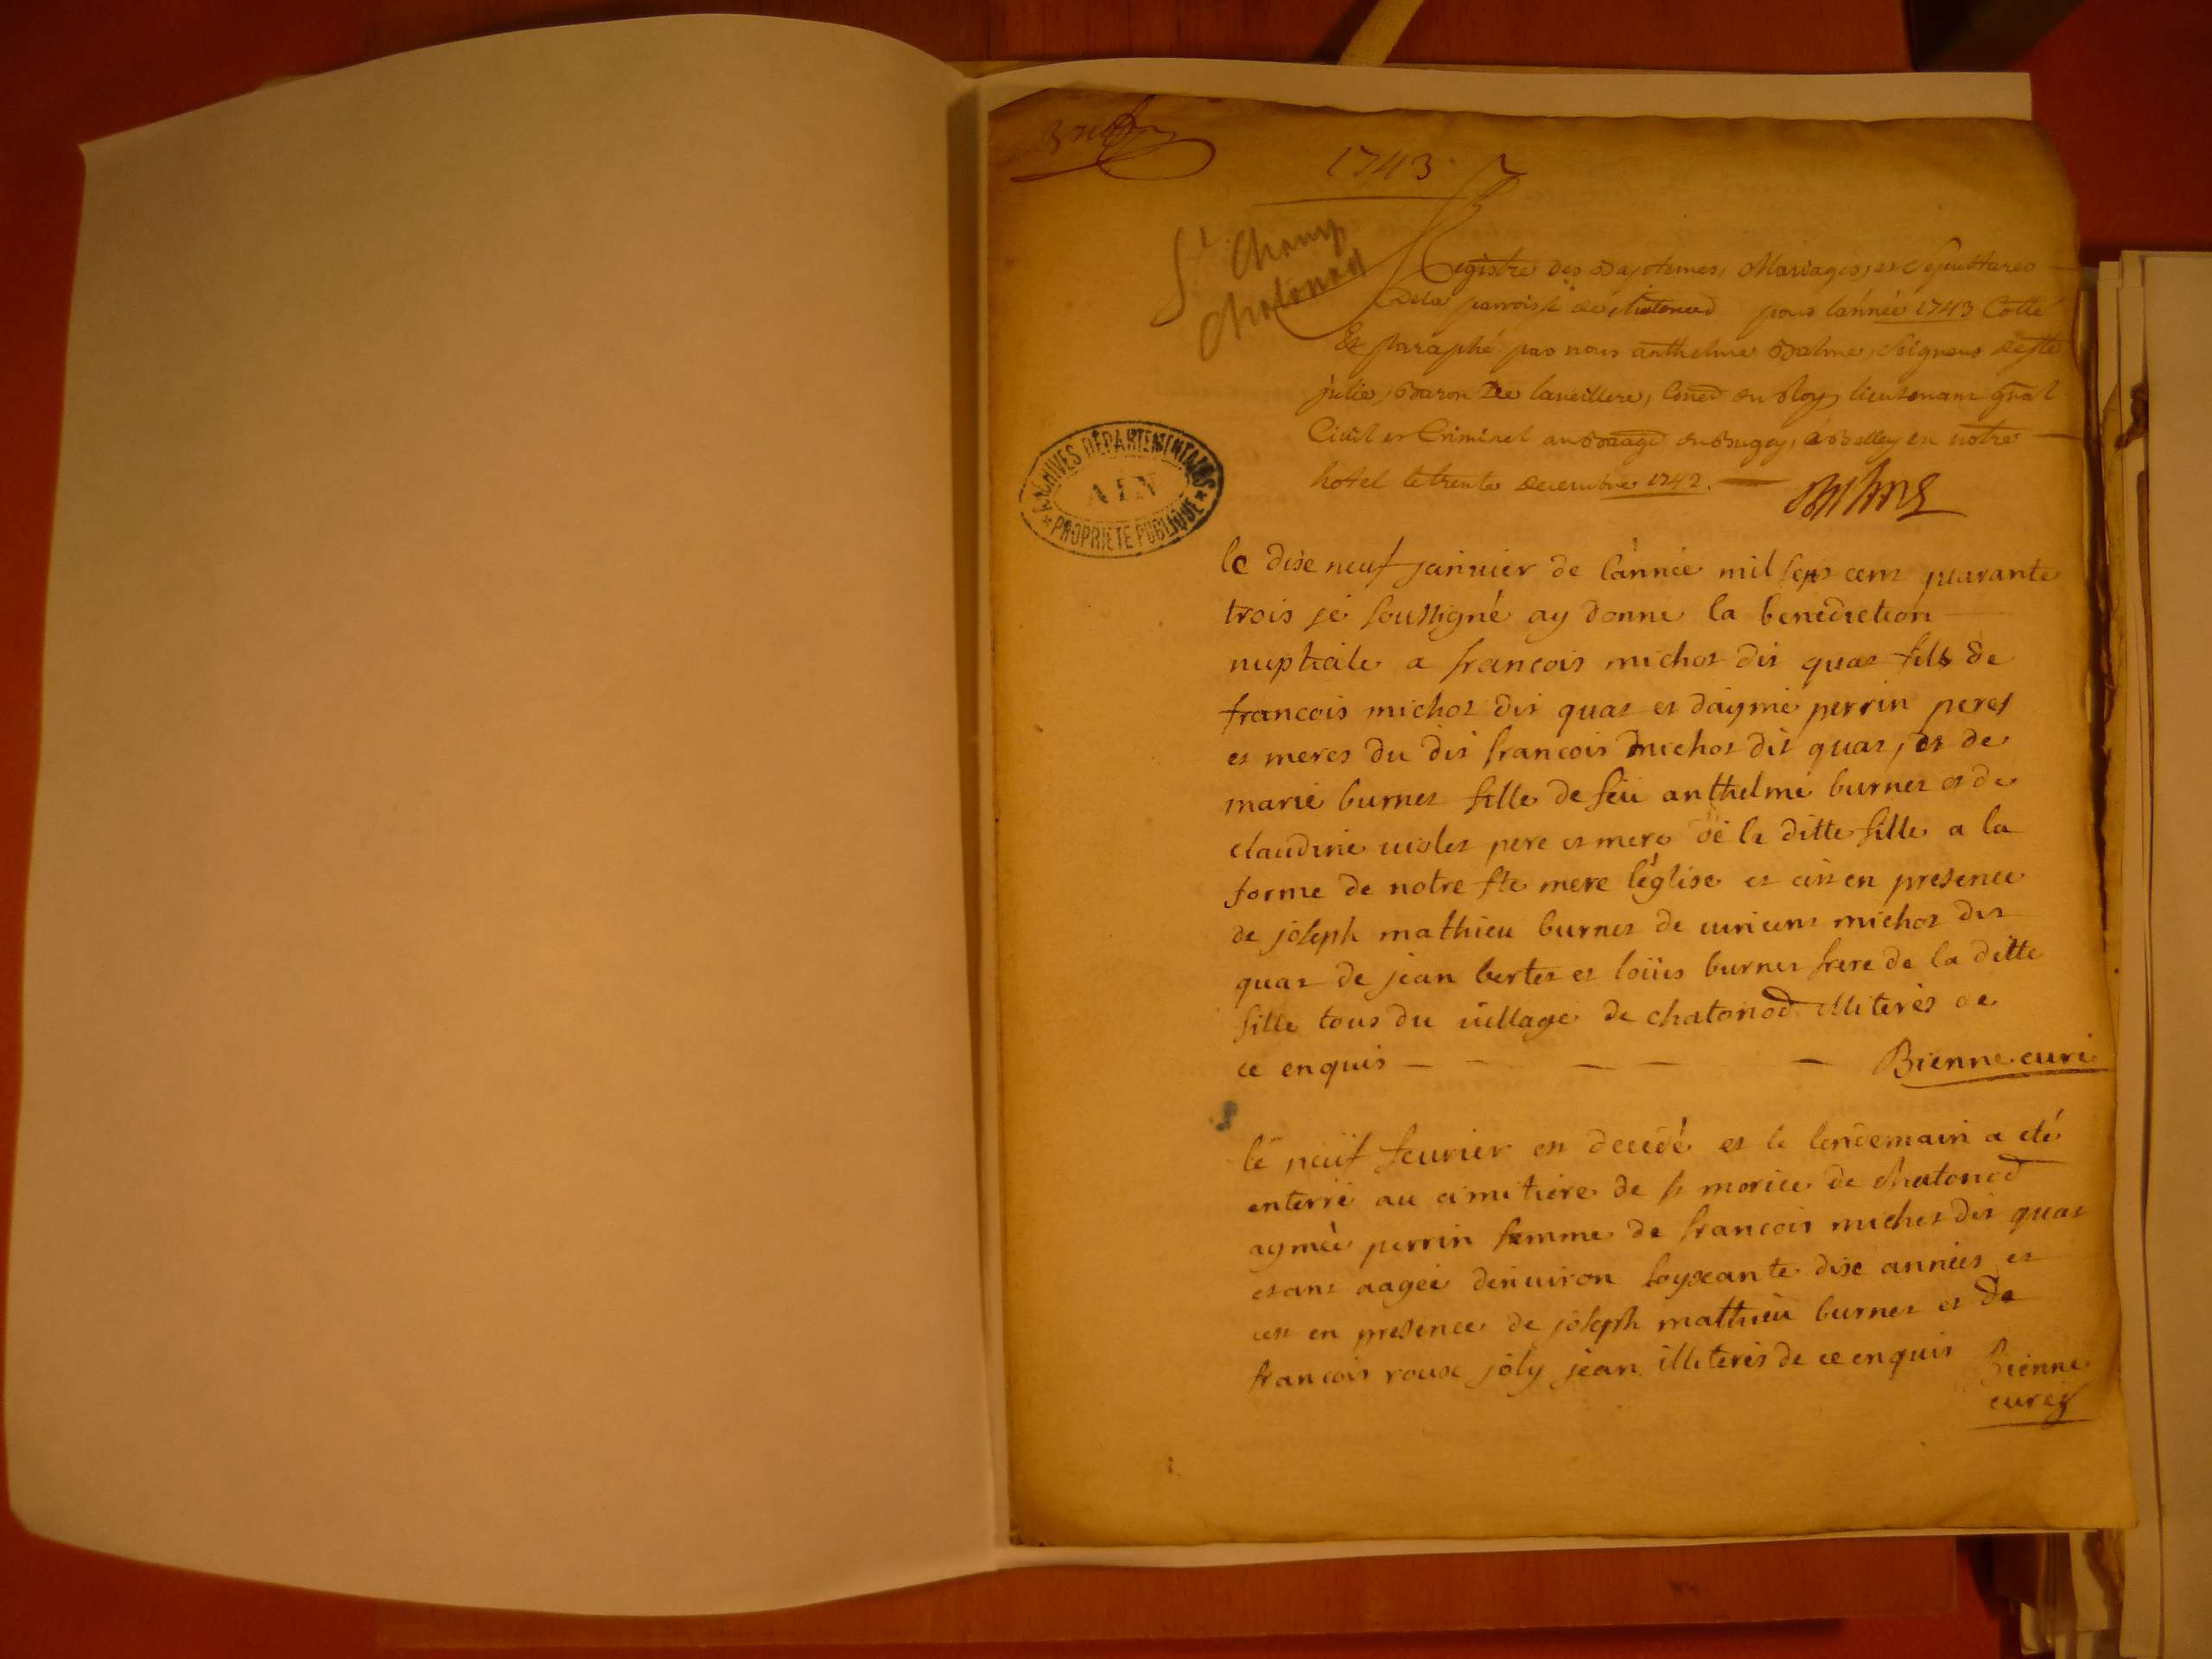 1743
St Champ
Chatonod
Registre des Baptemes, Mariages, et Sepultures
dela parroisse de Chatonod pour l'année 1743 Cotté
Et paraphé par nous anthelme Balme, Seigneur de Ste
julie, Baron De laveillere, Coner du Roy, lieutenant gnal
Civil et Criminel au Baage du Bugey, à Belley en notre
hotel le trente decembre 1742.
Balme
ARCHIVES DÉPARTEMENTALES
AIN
PROPRIÉTÉ PUBLIQUE
le dixe neuf janvier de l'année mil sept cent quarante
trois je soussigné ay donné la benediction
nuptiale a francois michot dit quat fils de
francois michot dit quat et d'aymé perrin peres
et meres du dit francois michot dit quat, et de
marie burnet fille de feu anthelme burnet et de
claudine violet pere et mere de la ditte fille a la
forme de notre ste mere l'église et ce en presence
de joseph mathieu burnet de vincent michot dit
quat de jean bertet et loüis burnet frere de la ditte
fille tous du village de chatonod illiterés de
ce enquis Bienne curé
le neuf feurier est decedé et le lendemain a eté
enterré au cimitiere de st morice de chatonod
aymée perrin femme de francois michot dit quat
etant aagée d'enuiron soyxante dixe années et
ce en presence de joseph mathieu burnet et de
francois roux joly jean illiterés de ce enquis Bienne
curé